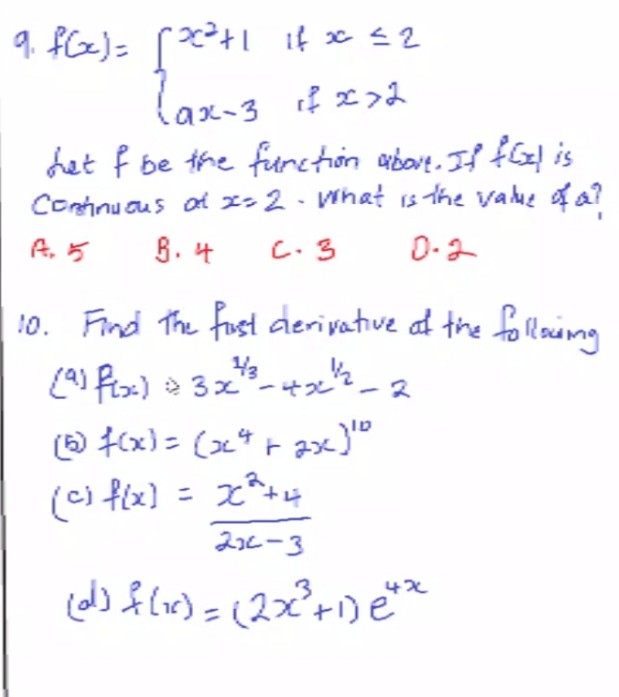 9. f(x) = { x²+1 if x ≤ 2
ax-3 if x >2
Let f be the function above. If f(x) is
Continuous at x=2. What is the value of a?
A. 5 B. 4 C. 3 D. 2
10. Find the first derivative of the following
(a) f(x) = 3x^{2/3} - 4x^{1/2} - 2
(b) f(x) = (x⁴ + 2x)¹⁰
(c) f(x) = x²+4
2x-3
(d) f(x) = (2x³+1) e^{4x}